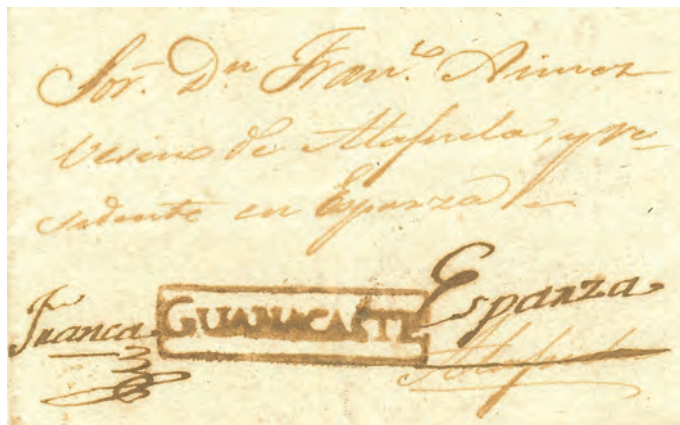 Sor. Dn Franco. Aimez
Vesino de Alajuela, y re-
sidente en Esparza
Franca. GUANACASTE Esparza.
Alajuela